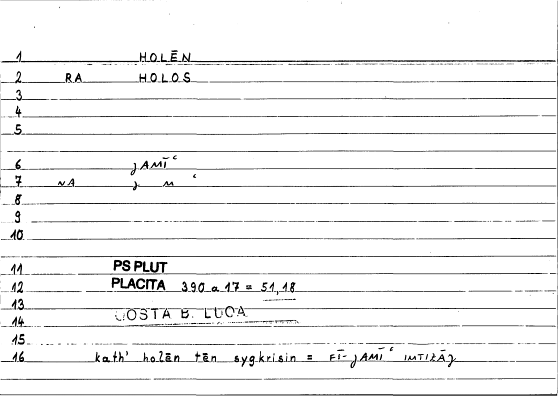 1 HOLĒN
2 RA HOLOS
3
4
5
6 ǧAMĪʿ
7 NA ǧ M ʿ
8
9
10
11 PS PLUT
12 PLACITA 390 a 17 = 51,18
13
14 QOSTA B. LUQA
15
16 kath' holēn tēn sygkrisin = FĪ-ǧAMĪʿ IMTIZĀǧ